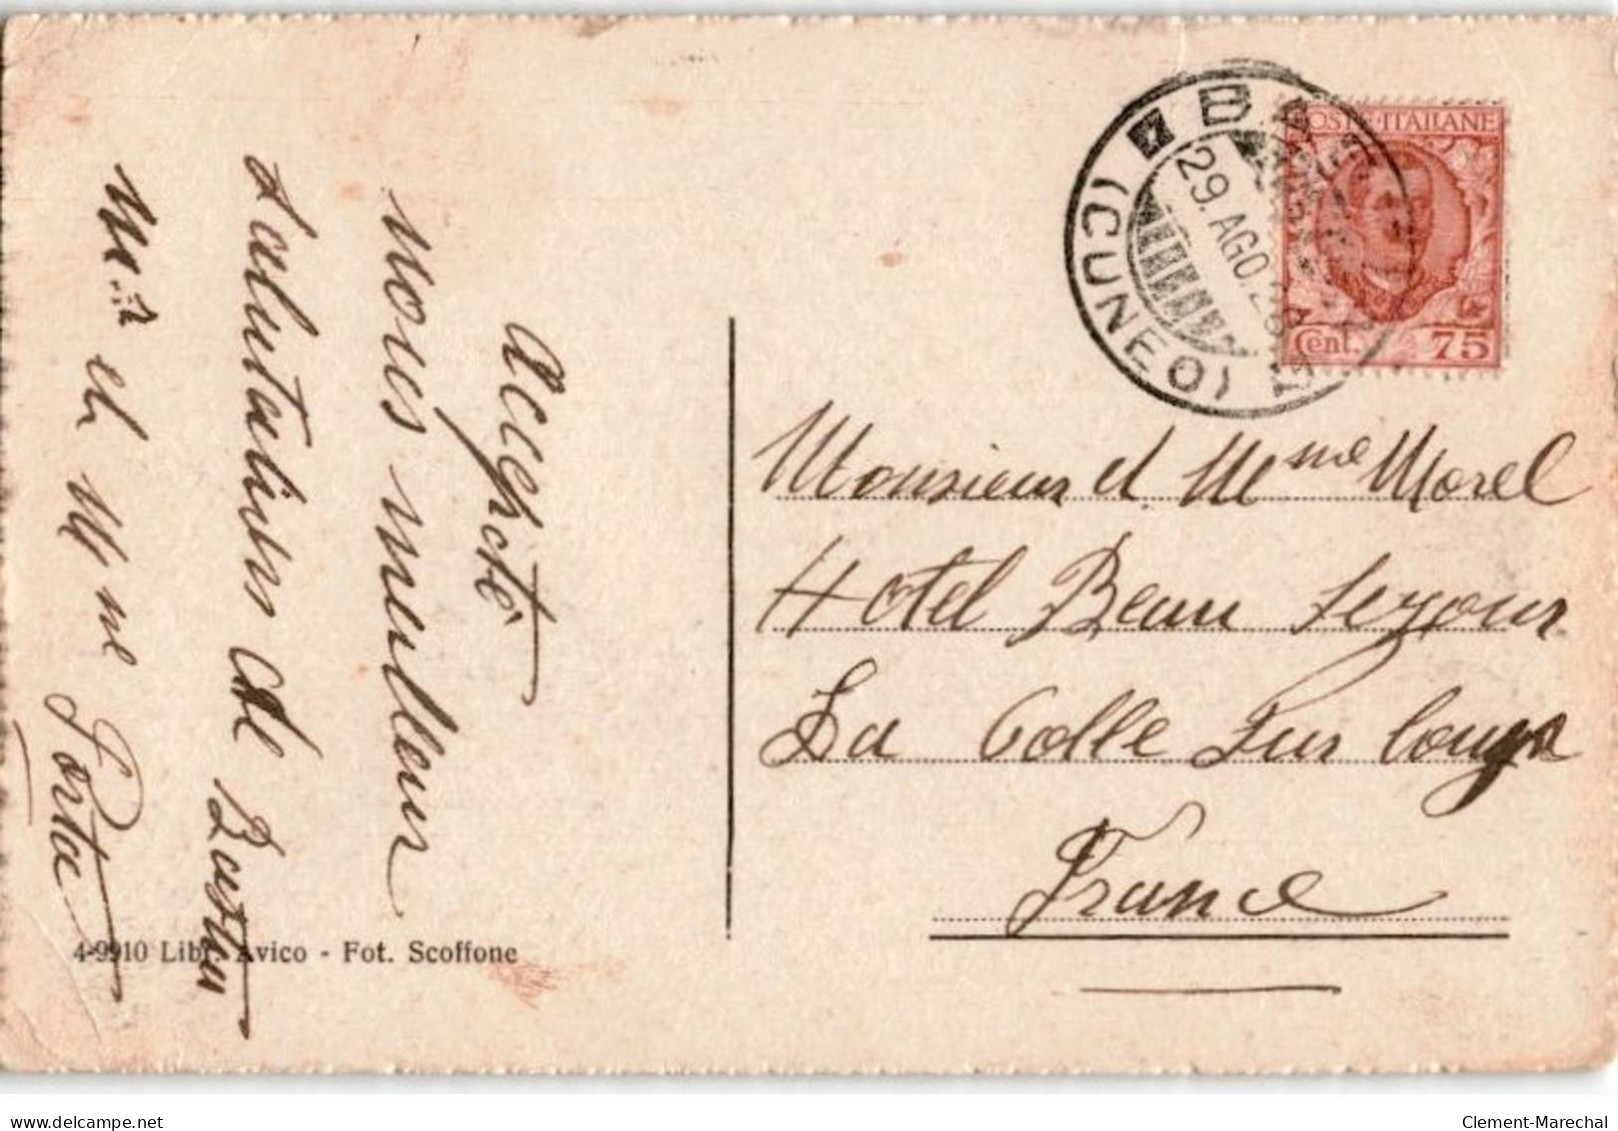 Accepté
Nous meulleur
Salutations de
Mr et Mme Porta
4-9910 Libr. Avico - Fot. Scoffone
POSTE ITALIANE
Cent. 75
29. AGO.
(CUNEO)
Monsieur et Mme Morel
Hotel Beau Sejour
La Colle Sur Loup
France
delcampe.net
Clement-Marechal